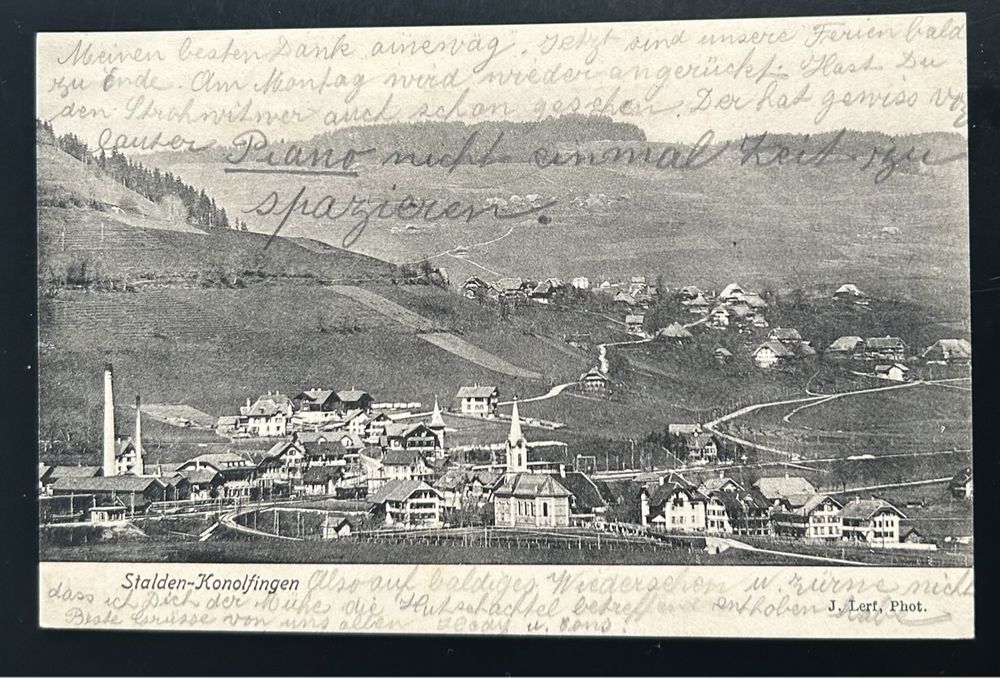 Meinen besten Dank aineväg. Jetzt sind unsere Ferien bald
zu Ende. Am Montag wird wieder angerückt. Hast Du
den Strohwitwer auch schon gesehen Der hat gewiss vor
lauter Piano nicht einmal Zeit zu
spazieren.
Stalden-Konolfingen
Also auf baldiges Wiedersehen u. zürne nicht
dass ich Dich der Mühe die Hutschachtel betreffend enthoben habe
J. Lerf, Phot.
Beste Grüsse von uns allen Hedy u.